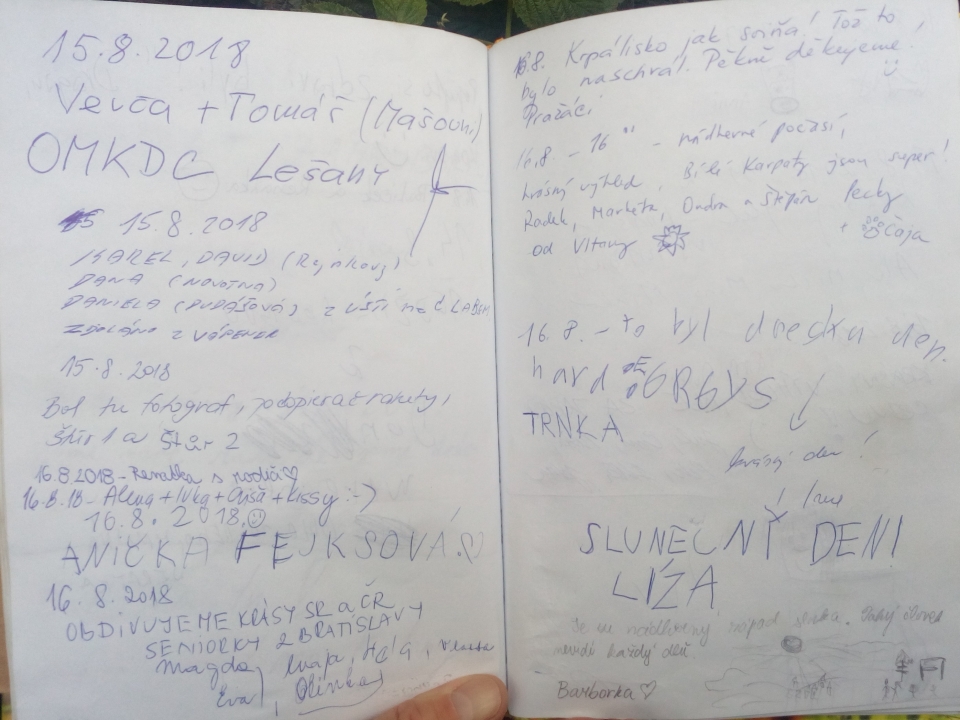 15.8.2018
Verča + Tomáš (Mašovi)
OMKDC Lešany
15.8.2018
KAREL, DAVID
DANA (NOVOTNÁ)
DANIELA (DUDÁŠOVÁ) Z ÚSTÍ NAD LABEM
ZDOLÁNO Z VÁPENEK
15.8.2018
Bol tu fotograf, podopierač rakety,
Štúr 1 a Štúr 2
16.8.2018 - Renatka s rodiči ♡
16.8.18 - Alena + Ivka + + Kissy :-)
16.8.2018 ☺
ANIČKA FEJKSOVÁ ♡
16.8.2018
OBDIVUJEME KRÁSY SR a ČR
SENIORKY Z BRATISLAVY
Magda, Hela, Vlasta
Eva, Olinka
16.8. Krpálisko jak sviňa! Tož to
bylo naschvál. Pěkně děkujeme!
Pražáci
16.8 - 16 - nádherné počasí,
krásný výhled, Bílé Karpaty jsou super!
Radek, Markéta, Ondra a Štěpán Pecky
od Vltavy + Čája
16.8. - to byl dnecka den.
hard GRGYS
TRNKA
krásný den!
SLUNEČNÝ DEN!
LÍZA
Je tu nádherný západ slnka. Taký človek
nevidí každý deň.
Barborka ♡